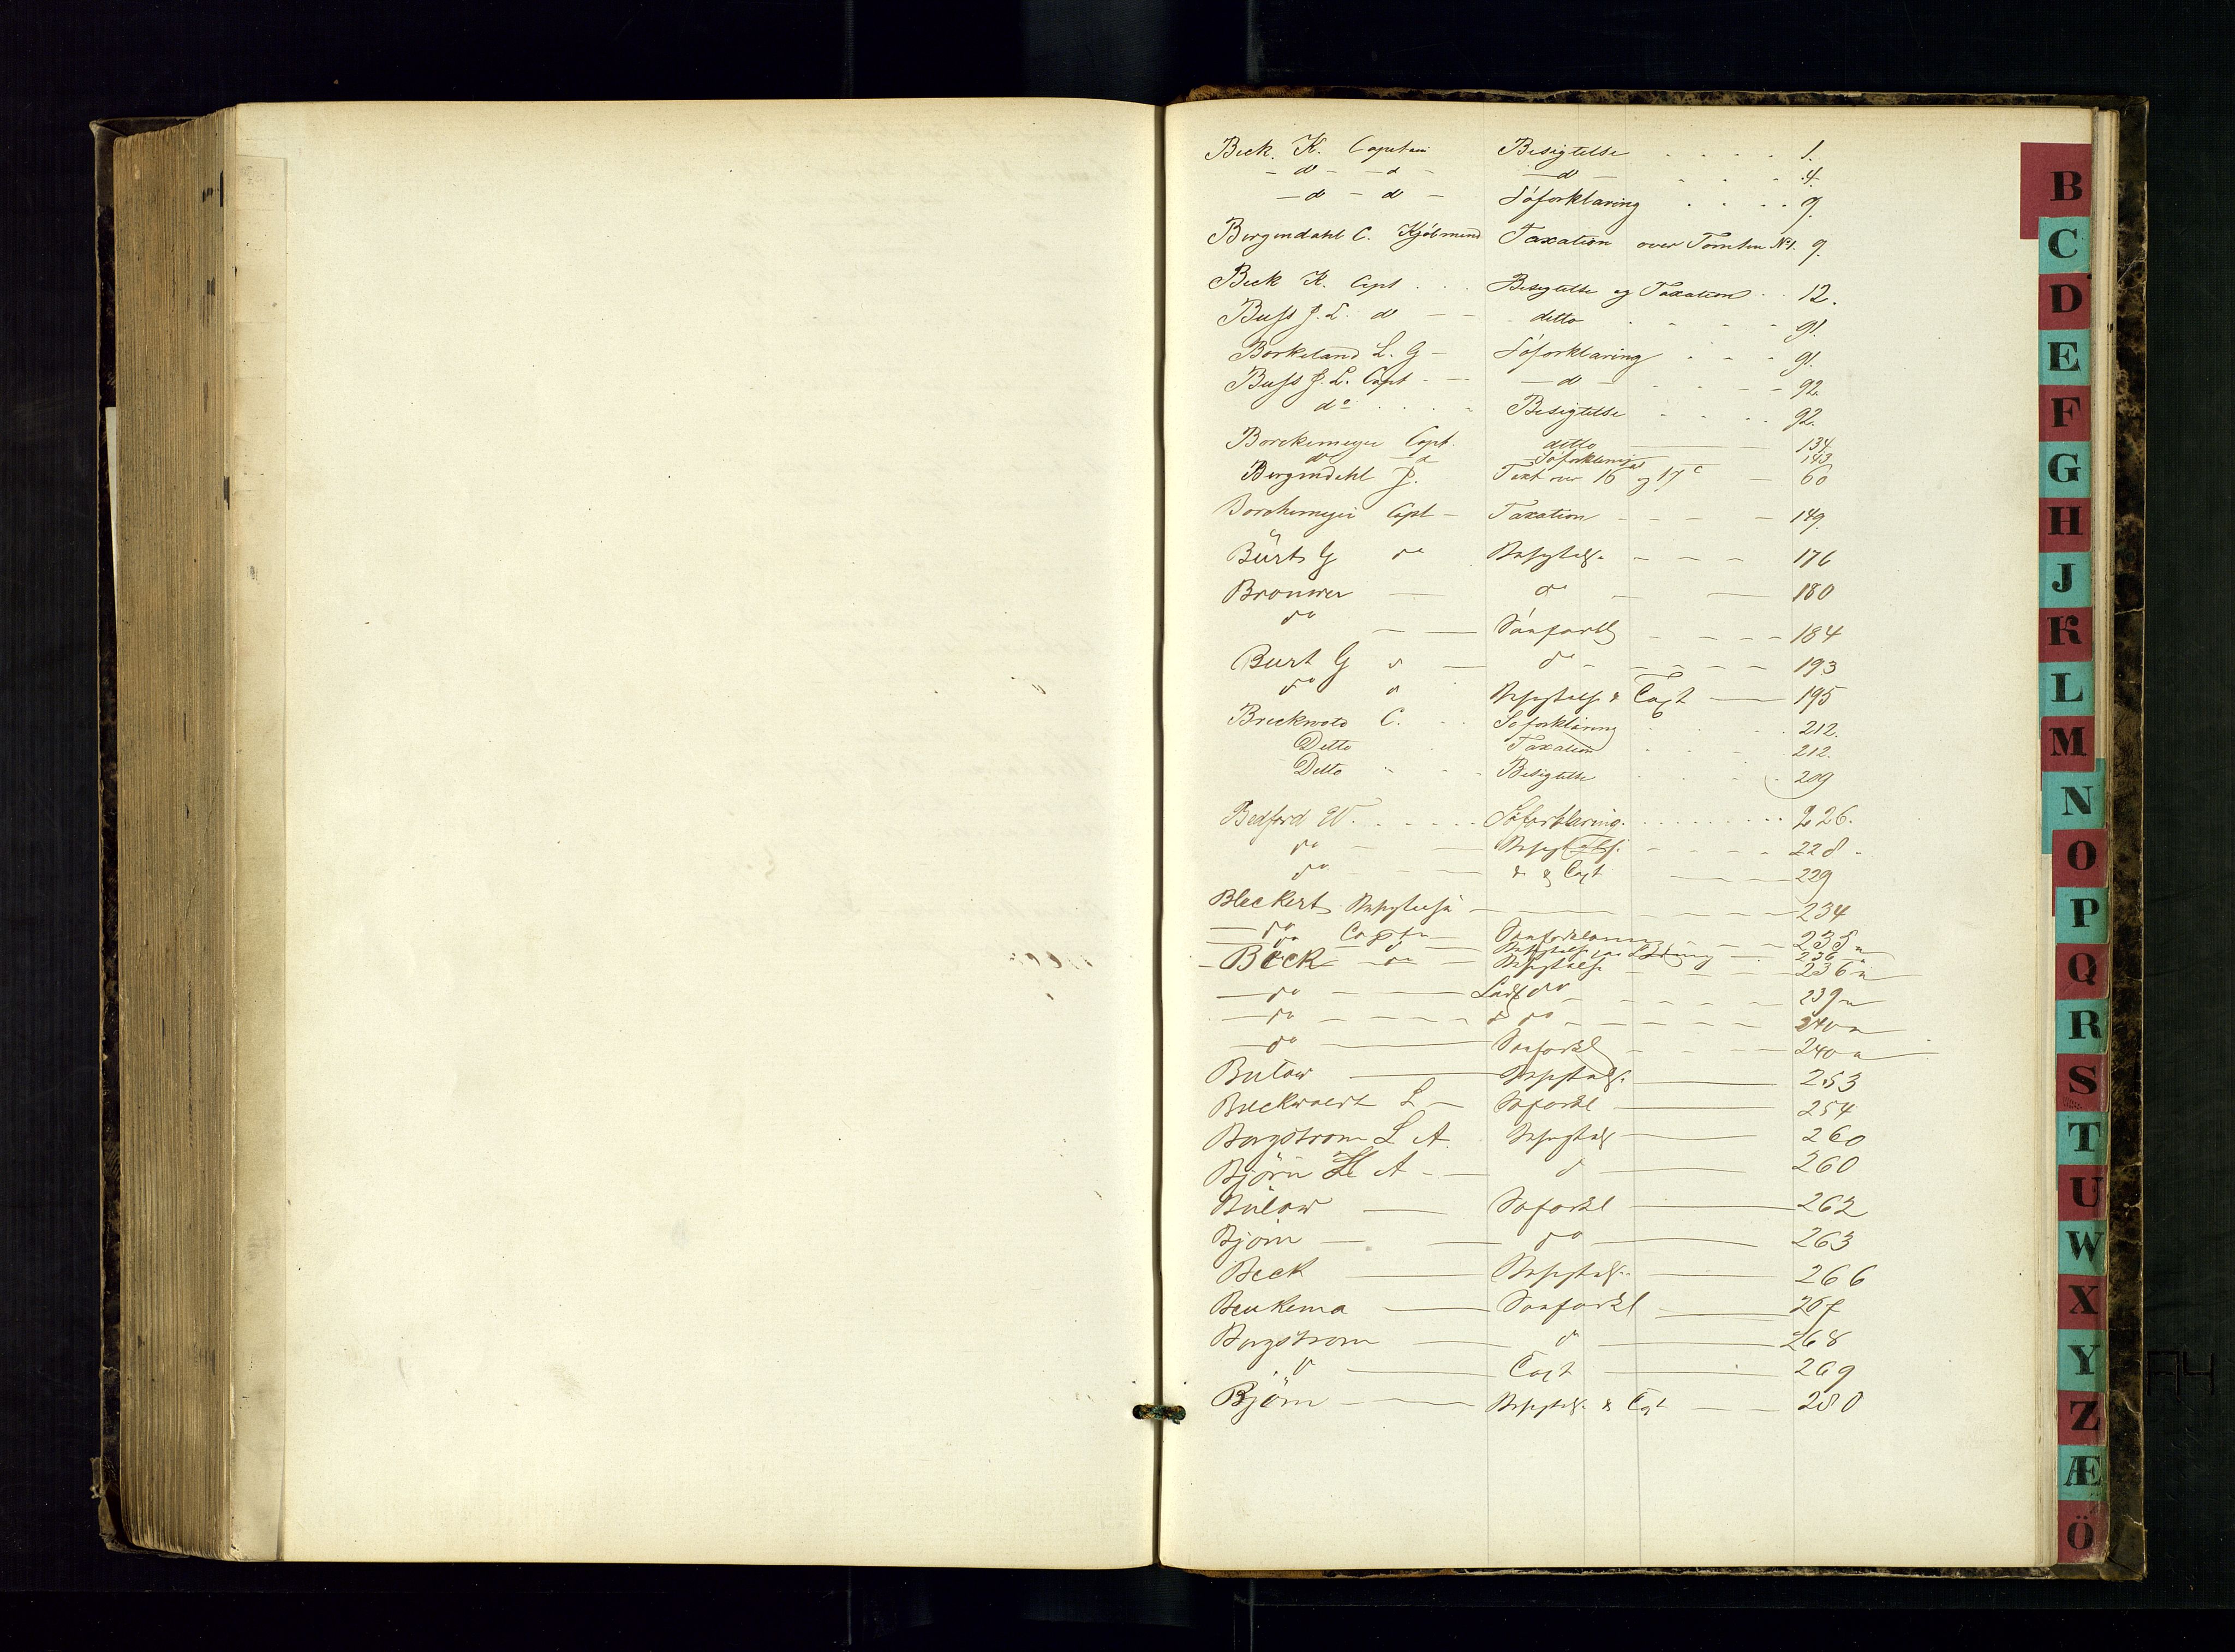 Beck. K. Capitain Besigtelse . . . . 1.
- do - - d - - do - . . . 4.
- do - do - Söforklaring . . . . 9.
Bergendahl C. Kjöbmand Taxation over Tomten No 1. 9.
Beck K. Capt . . . Besigtelse og Taxation . . 12.
Buss J. L. do - - ditto . . . . 91.
Borkeland L. G - Söforklaring . . . 91.
Buss J. L. Capt - - - do - - - - 92.
do . . . . Besigtelse . . . . 92.
Borckemeyer Capt. ditto 134.
do d Söforklaring 143
Bergendahl J. Taxt over 16 og 17 c - 60
Borchemeyer Capt - Taxation - - - - 149.
Bürt G do Besigtelse - - - 176
Brouwer - do - - 180
do - - Söeforkl - - - - 184
Burt G d - do - - - - - 193
do d Besigtelse & Taxt - 195
Breckwold C. . . Söforklaring . . . 212.
Ditto . Taxation . . . 212.
Ditto . . . Besigtelse . . . . 209
Bedford W. . . . . . Söforklaring. . . . . . . . . 226.
do - - Besigtelse - - - - 228 -
do - - - - & & Taxt - 229
Bleckert Besigtelse - - - - - 234
- do Captn - Soeforklaring - - 235 a
- do - d - Besigtelse - 236 a
- Beck - do - Besigtelse - - - - 236 a
- do - - - Ladg do - - - - - 239 a
- do - - - - - & do - - - - - 240 a
- do - Soeforkl - - - - 240 a
Bulow - Besigtelse - 253
Breckwoldt L - Soforkl - 254
Borgstrom L A. Besigtels - 260
Björn H A - - d - 260
Bülow - Soforkl - 262
Bjorn - - do - 263
Beck - Besigtelse - 266
Beukema - Soeforkl - 267
Borgstrom - d - 268
d - Taxt - 269
Björn - - Besigtelse & Taxt - - 280
B
C
D
E
F
G
H
J
K
L
M
N
O
P
Q
R
S
T
U
W
X
Y
Z
Æ
Ö